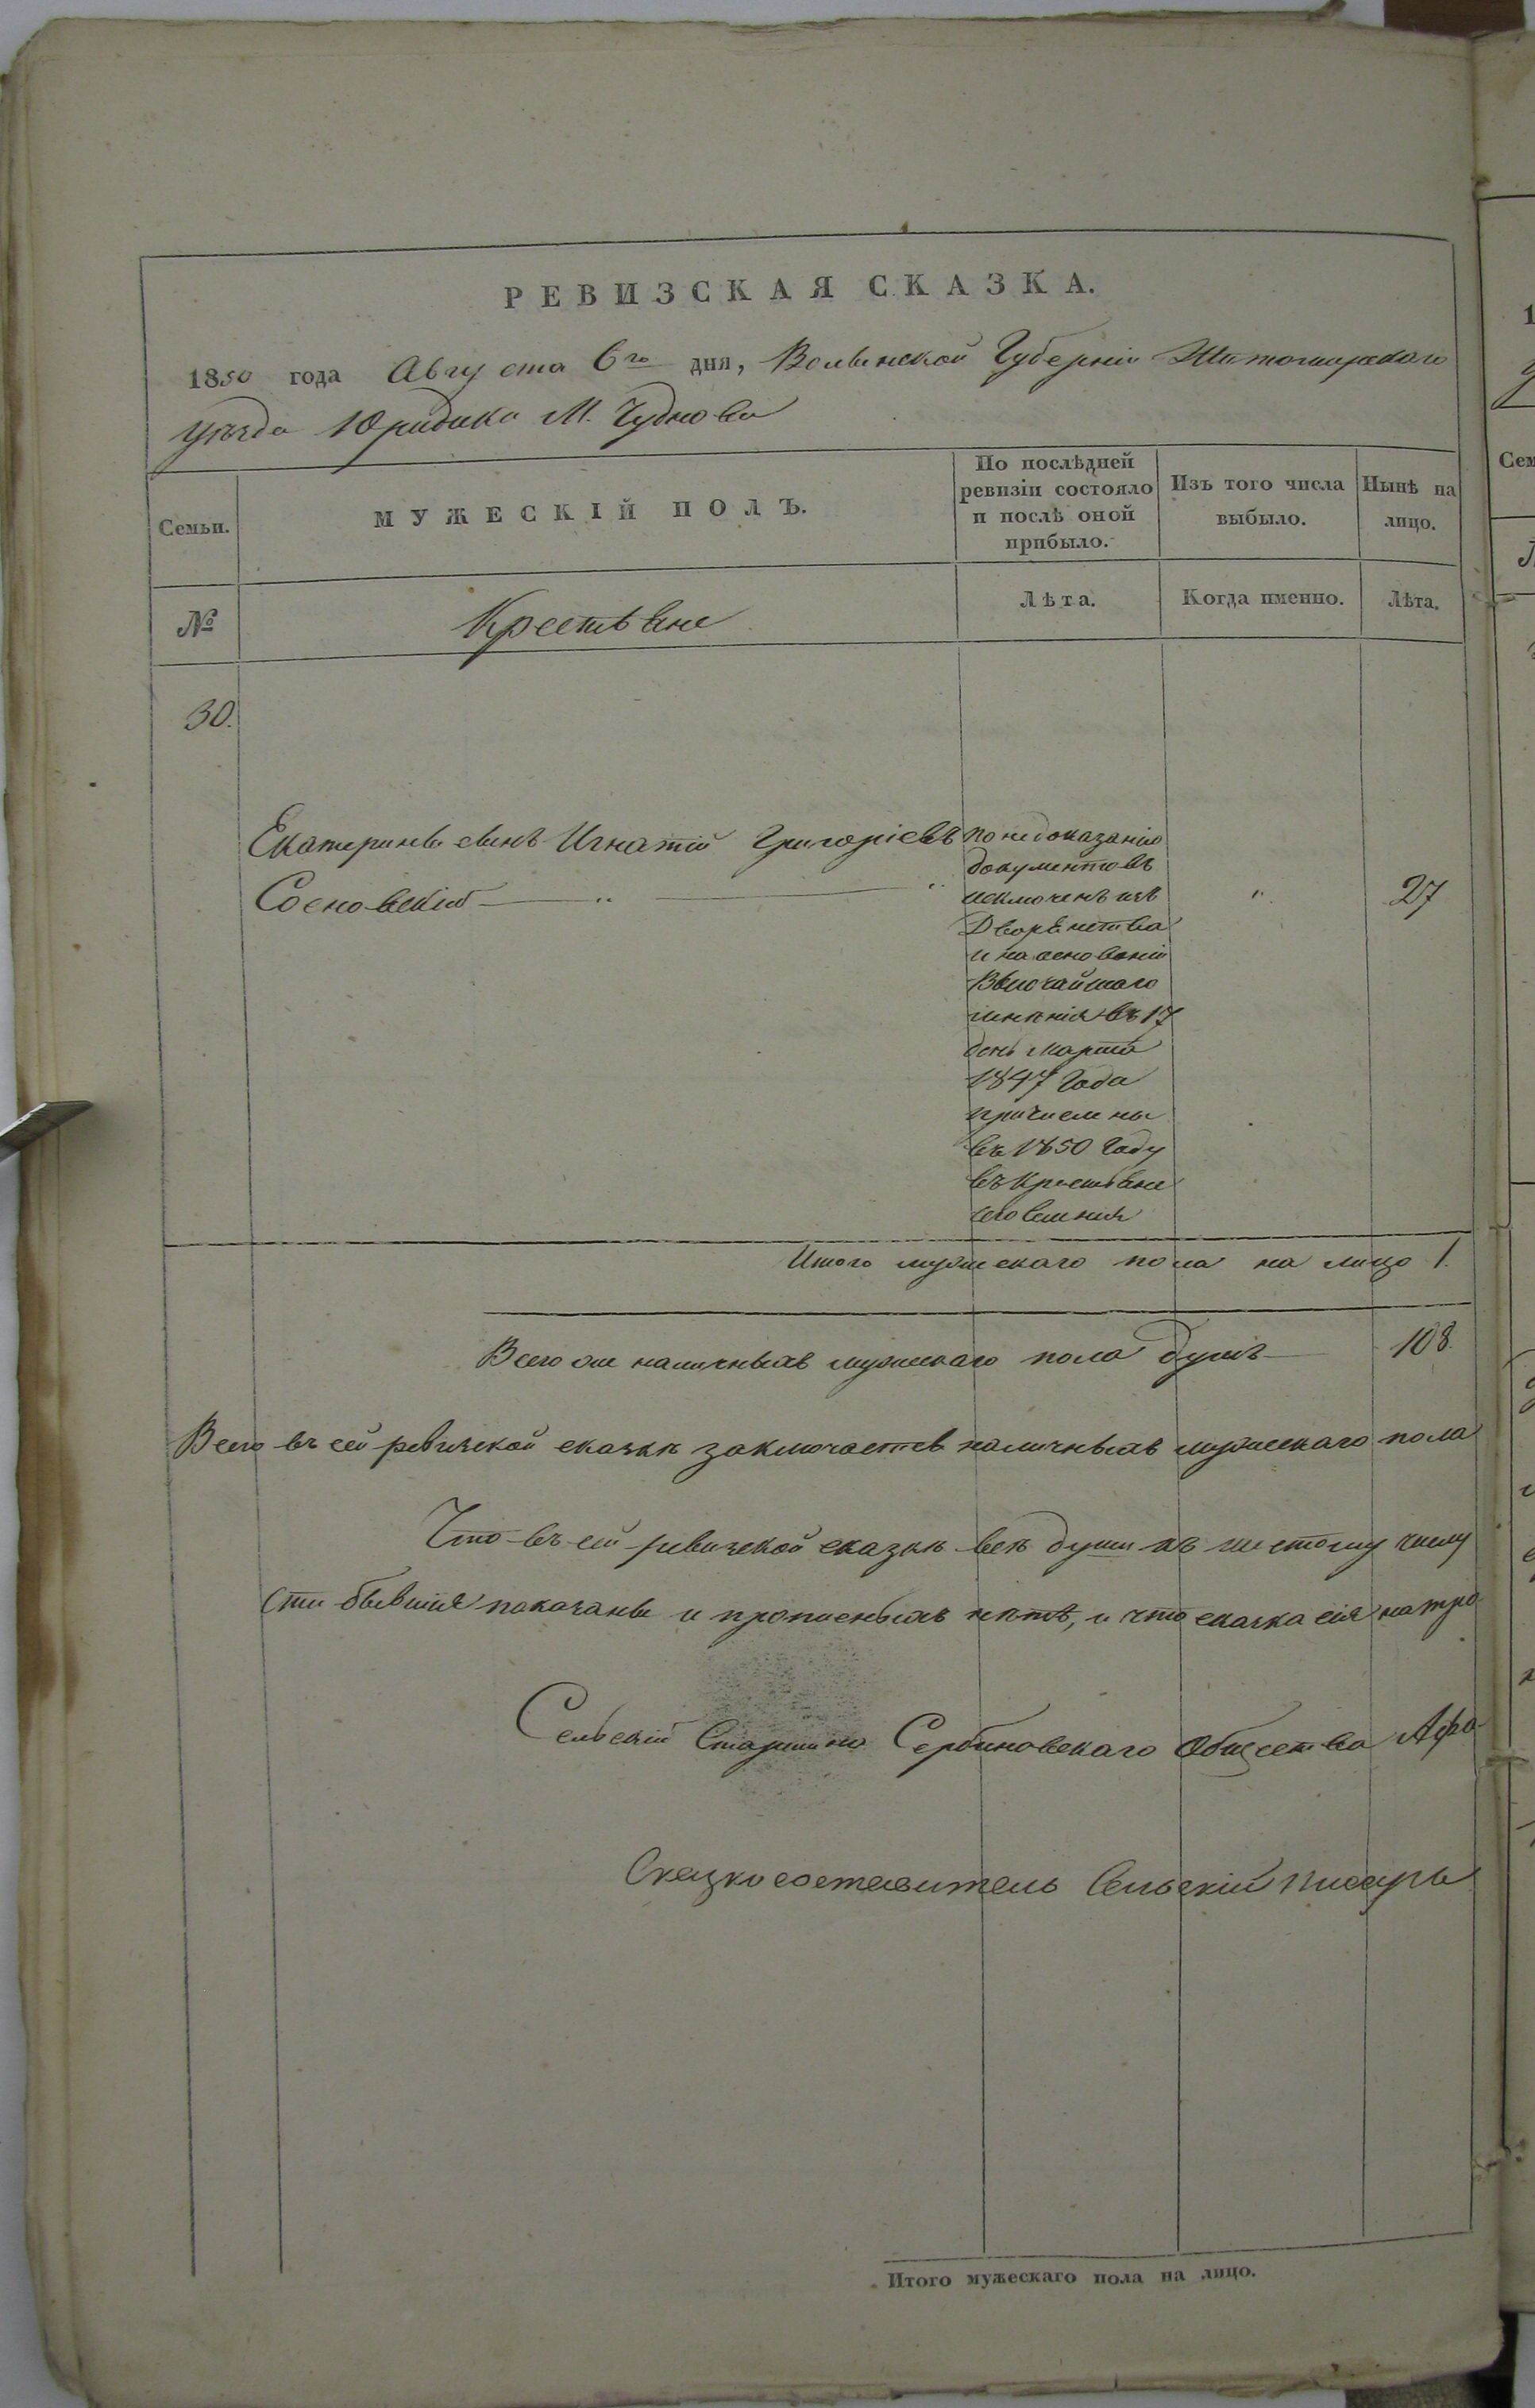 РЕВИЗСКАЯ СКАЗКА.
1850 года Августа 6го дня, Волынской Губерніи Житомирскаго
уѣзда Юридика М. Чуднова
Семьи.
МУЖЕСКІЙ ПОЛЪ.
По послѣдней
ревизіи состояло
и послѣ оной
прибыло.
Изъ того числа
выбыло.
Нынѣ на
лицо.
№
Крестьяне
Лѣта.
Когда именно.
Лѣта.
30.
Екатерины сынъ Игнатій Григоріевъ
Сосновскій — " — "
по недоказанію
документовъ
исключенъ изъ
Дворянства
и на основаніи
Высочайшаго
мнѣнія въ 17
день марта
1847 Года
причислены
въ 1850 Году
въ крестьяне
сего
"
27
Итого мужескаго пола на лицо 1.
Всего же наличныхъ мужескаго пола душъ — 108
Всего въ сей ревизской сказкѣ заключается наличныхъ мужескаго пола
Что въ сей ревизской сказкѣ всѣ души къ шестому числу
сти бывшія показаны и прописныхъ нѣтъ, и что сказка сія на тро
Сельскій Старшина Сербиновскаго Общества Афа
Сказкосоставитель Сельскій писарь
Итого мужескаго пола на лицо.